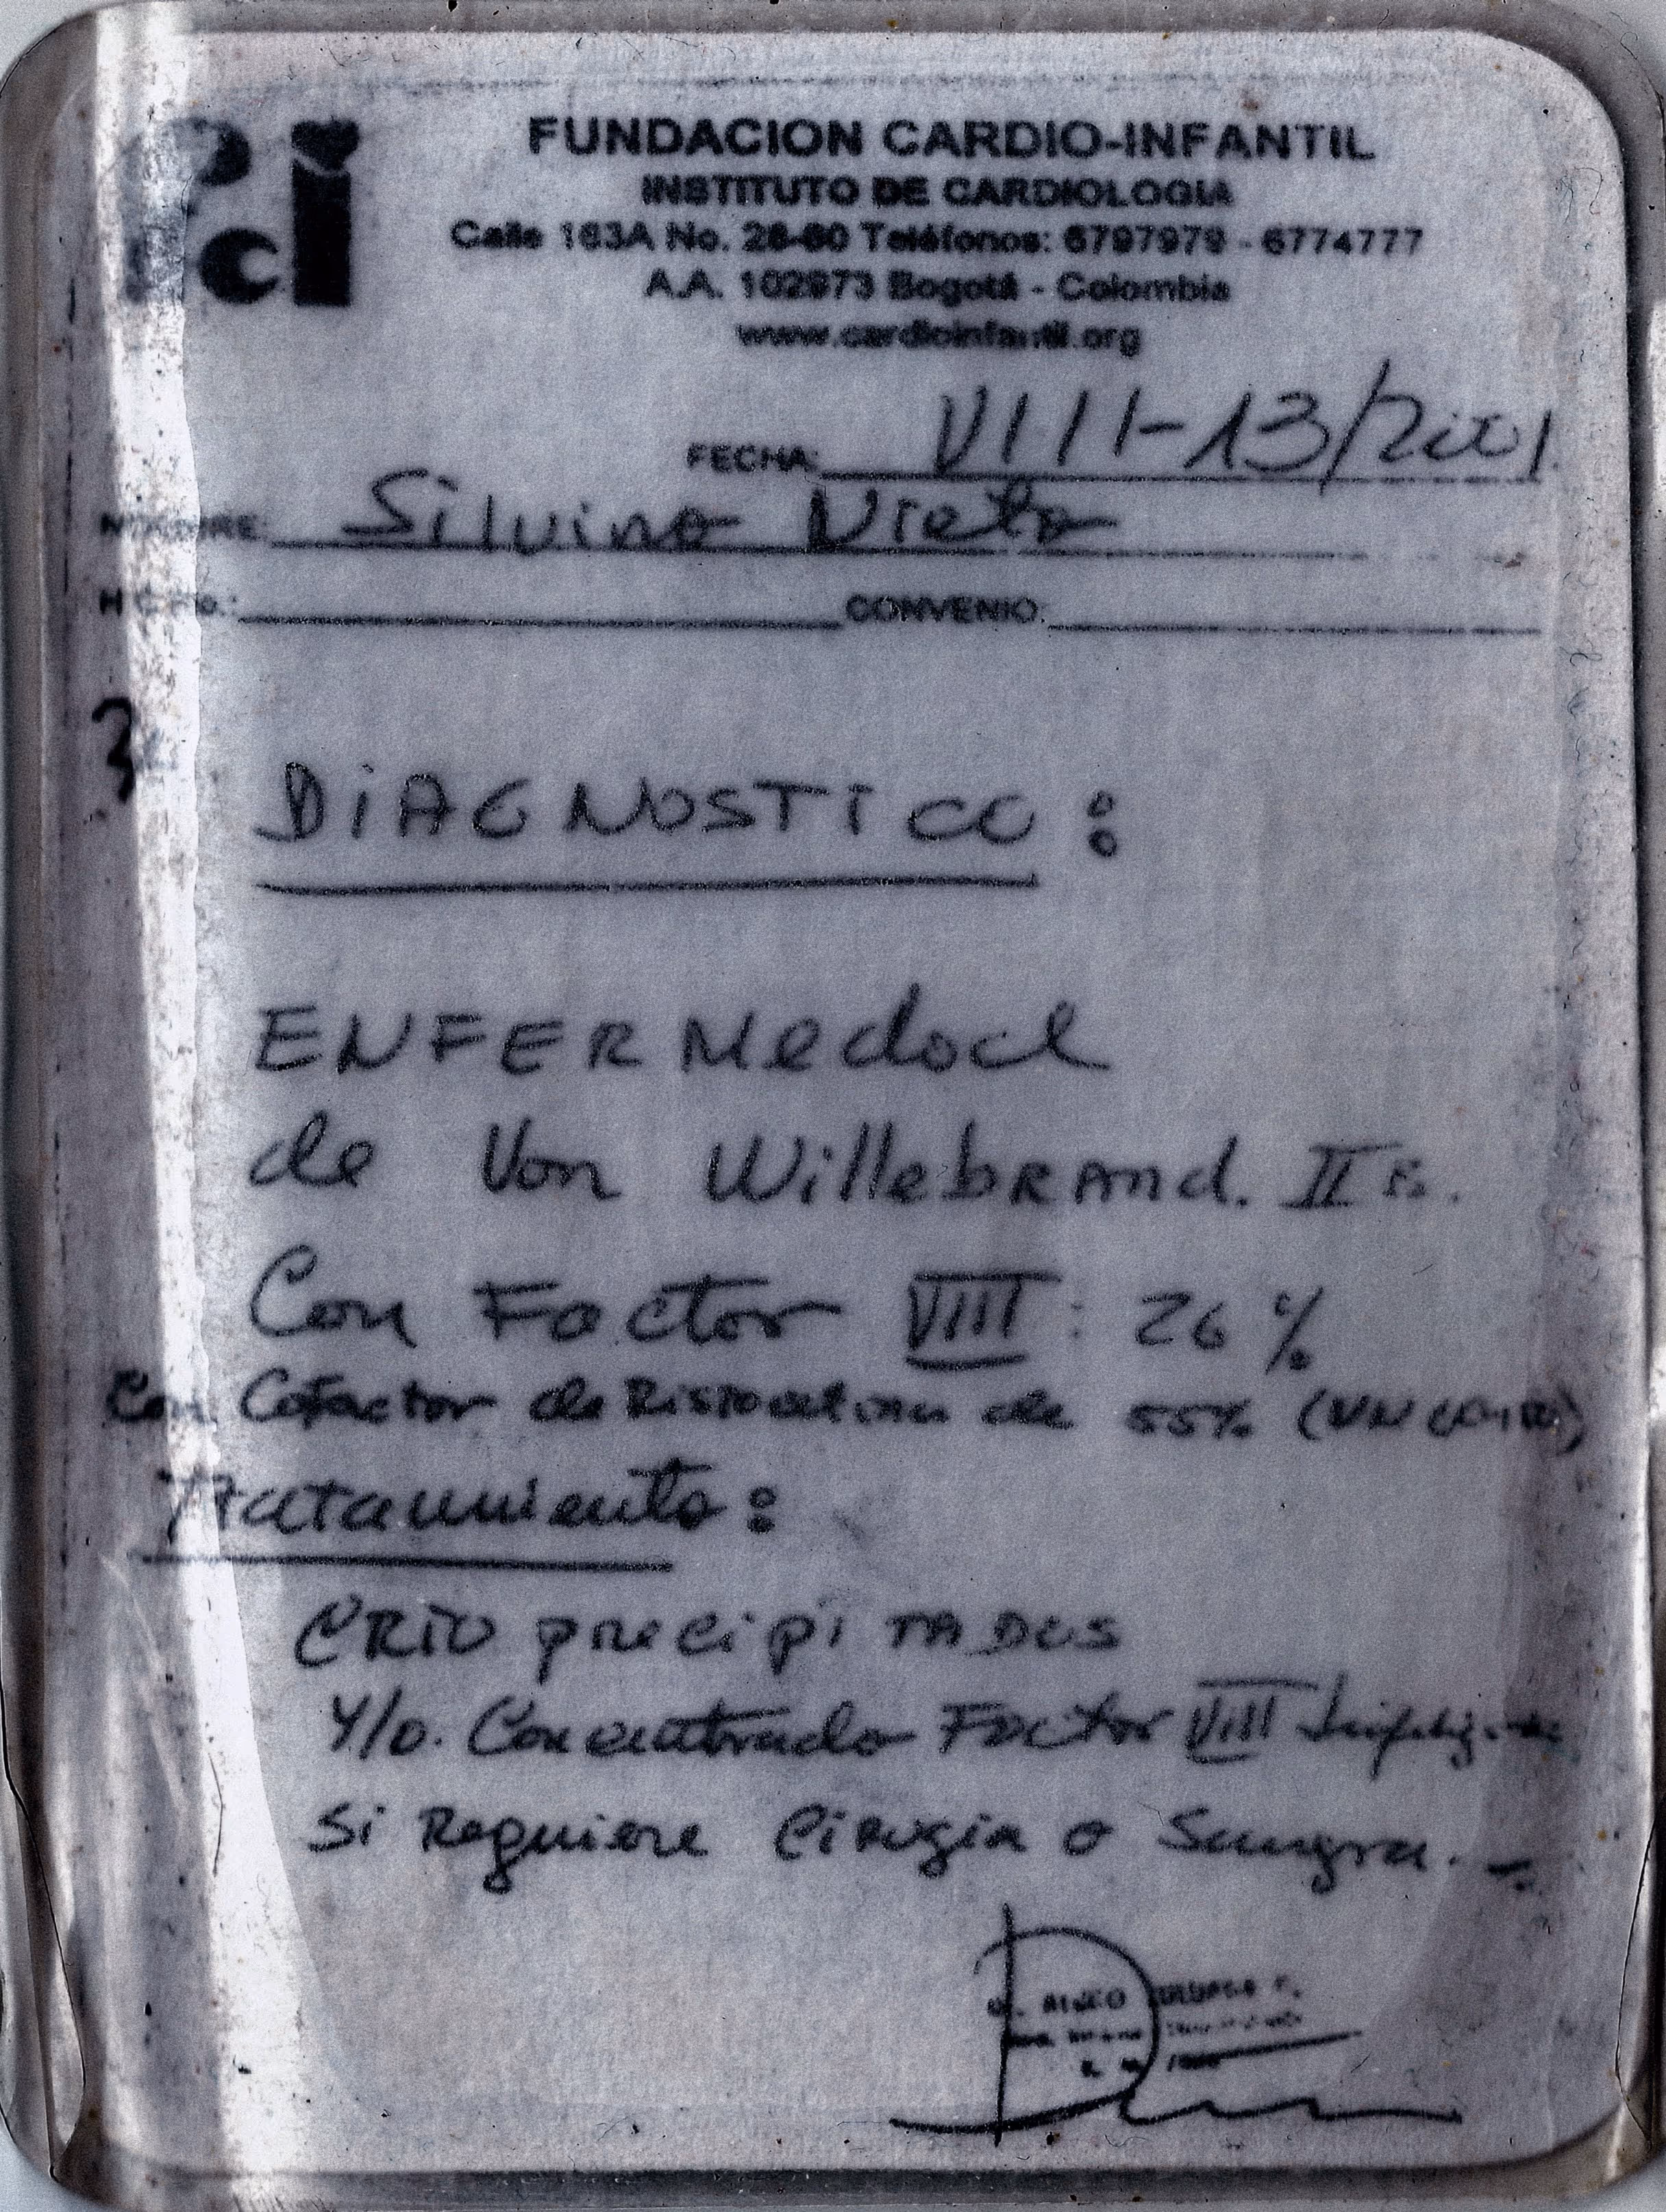 fci
FUNDACION CARDIO-INFANTIL
INSTITUTO DE CARDIOLOGIA
Calle 163A No. 28-60 Teléfonos: 6797979 - 6774777
A.A. 102973 Bogotá - Colombia
www.cardioinfantil.org
FECHA: VIII-13/2001
NOMBRE: Silvino Nieto
H.C. No.: CONVENIO:
DiAGNOSTICO:
ENFERMedad
de Von WillebRAnd. II
Con Factor VIII: 26%
Con Cofactor de Ristocetina de 55%
Tratamiento:
CRIO precipiTADOS
Y/o. Concentrado Factor VIII
Si Requiere Cirugia o Sangra.